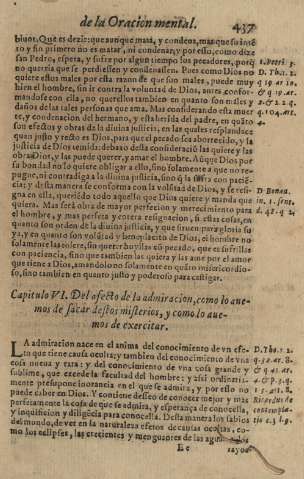 de la Oracion mental. 437
biuot. Que es dezir: que aunque mata, y condena, mas que su inten-
to y fin primero no es matar, ni condenar, y por esto, como dize
san Pedro, espera, y sufre por algun tiempo los pecadores, porq̃
no querria que se perdiessen y condenassen. Pues como Dios no
quiere estos males por esta razon de que son males, puede muy
bien el hombre, sin ir contra la voluntad de Dios, antes confor-
mandose con ella, no querellos tambien en quanto son males y
daños de las tales personas que ama. Mas considerando esta muer
te, y condenacion del hermano, y esta herida del padre, en quãto
son efectos y obras de la diuina justicia, en las quales resplandece
quan justo y recto es Dios, para que el pecado sea aborrecido, y la
justicia de Dios temida: debaxo desta consideraciõ las quiere y las
obra Dios, y las puede querer, y amar el hombre. Aũque Dios por
su bondad no le quiere obligar a ello, sino solamente a que no re-
pugne, ni contradiga a la diuina justicia, sino q̃ la sufra con pacien-
cia; y desta manera se conforma con la volũtad de Dios, y se resi-
gna en ella, queriẽdo todo aquello que Dios quiere y manda que
quiera. Mas será obra de mayor perfeccion y merecimiento para
el hombre, y mas perfeta y entera resignacion, si estas cosas, en
quanto son orden de la diuina justicia, y que siruen para gloria su
ya, y en quanto son volũtad y beneplacito de Dios, el hombre no
solamẽte las tolere, sin querer huyllas cõ pecado, que es sufrillas
con paciencia, sino que tambien las quiera y las ame por el amor
que tiene a Dios, amandolo no solamente en quãto misericordio-
so, sino tambien en quanto justo y poderoso para castigar.
Capitulo VI. Del afecto de la admiracion, como lo aue-
mos de sacar destos misterios, y como lo aue-
mos de exercitar.
LA admiracion nace en el anima del conocimiento de vn efe-
to que tiene causa oculta; y tambien del conocimiento de vna
cosa nueua y rara: y del conocimiento de vna cosa grande y
sublime, que excede la facultad del hombre; y assi ordinaria-
mente presupone ignorancia en el que se admira, y por esto no
puede caber en Dios. Y contiene desseo de conocer mejor y mas
perfetamente la cosa de que se admira, y esperança de conocella,
y inquisicion y diligẽcia para conocella. Desta manera los sabios
del mundo, de ver en la naturaleza efetos de causas ocultas, co-
mo los eclipses, las crecientes y menguantes de las aguas, los
Ee
1. Petri 3.
D. Tho. 1.
D. Bonau.
in 1. sent.
d. 48. q. 2.
D. Tho. 1. 2.